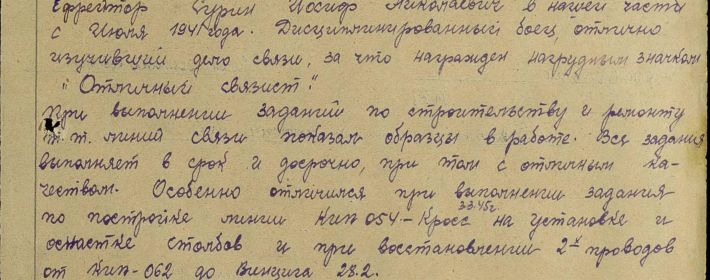 Ефрейтор Гурин Иосиф Николаевич в нашей части
с Июля 1941 года. Дисциплинированный боец, отлично
изучивший дело связи, за что награжден нагрудным значком
"Отличный связист".
При выполнении заданий по строительству и ремонту
т.т. линий связи показал образцы в работе. Все задания
выполняет в срок и досрочно, при том с отличным ка-
чеством. Особенно отличился при выполнении задания
3.3.45г.
по постройке линии Кип 054 - Кросс на установке и
оснастке столбов и при восстановлении 2-х проводов
от Кип-062 до Винцига 28.2.